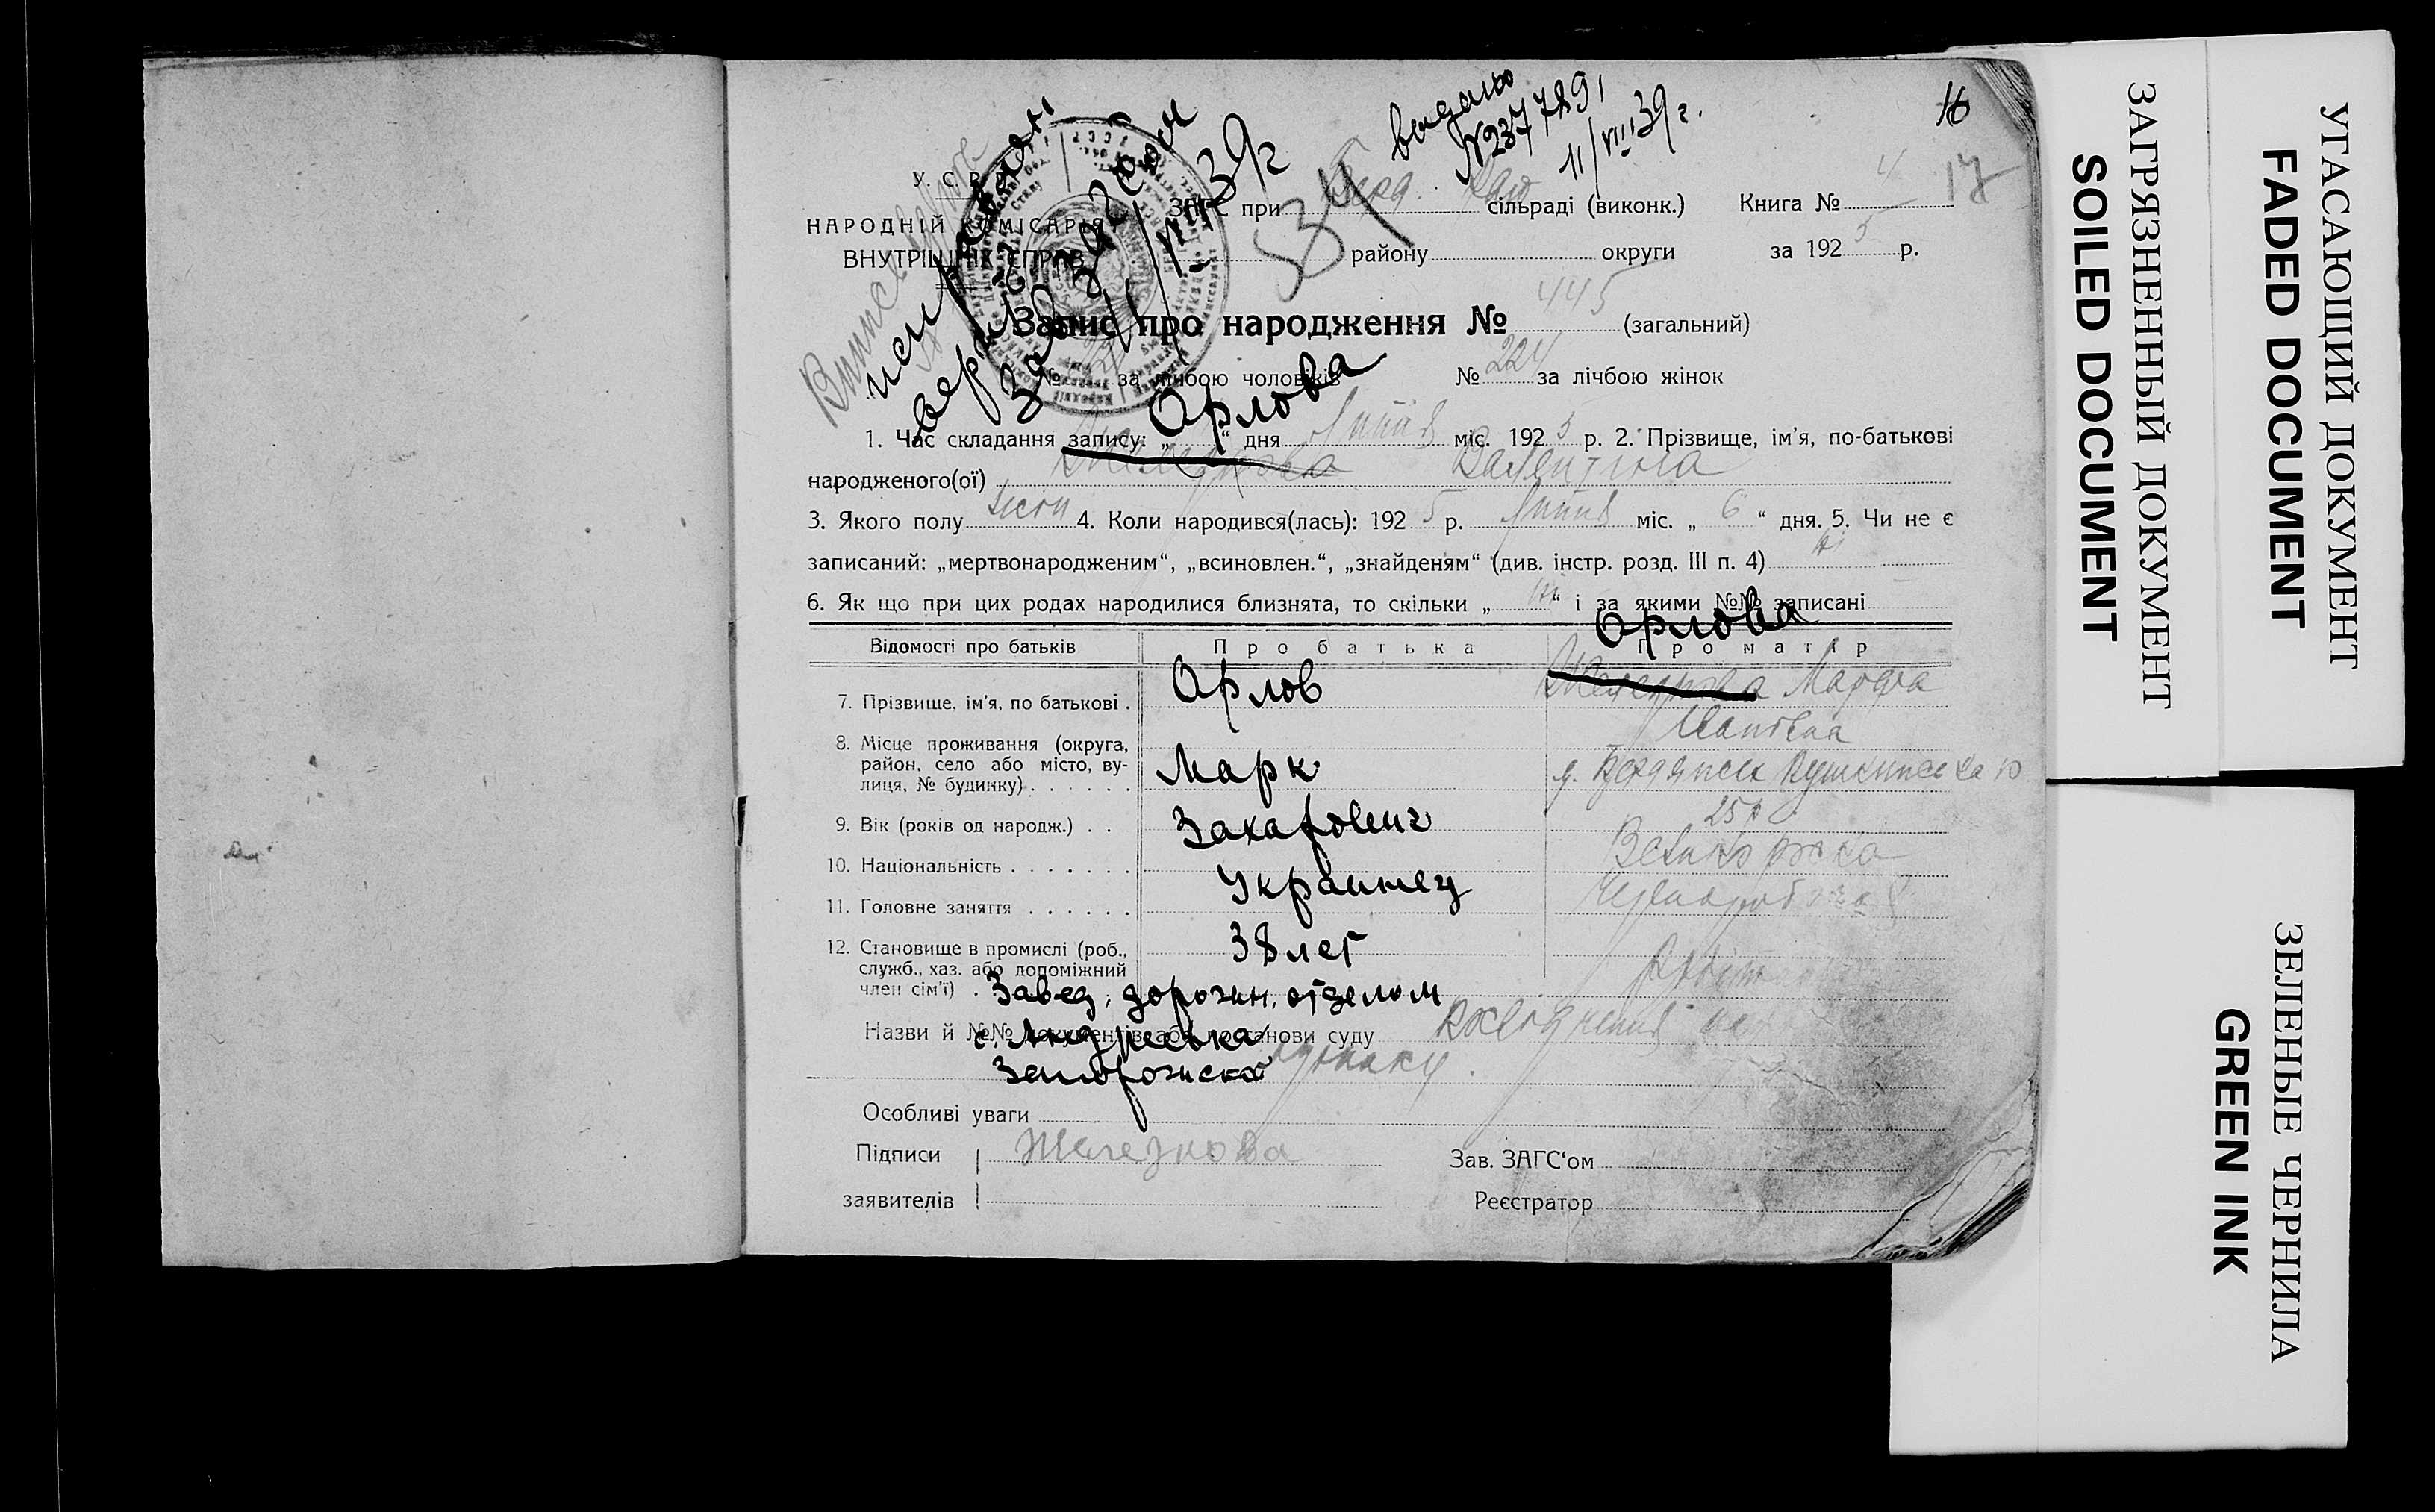 16
17
выдано
N 237 7891
11/VIII 39 г.
исправлен
верно
Зав загсом
11/VIII 39 г
34
У. С. Р. Р.
НАРОДНІЙ КОМІСАРІЯТ
ВНУТРІШНІХ СПРАВ
ЗАГС при Берд. сільраді (виконк.) Книга № 4
району округи за 192 5 р.
Запис про народження № 445 (загальний)
№ за лічбою чоловіків № 224 за лічбою жінок
Орлова
1. Час складання запису: „ “ дня Липня міс. 192 5 р. 2. Прізвище, ім’я, по-батькові
народженого(ої) Железнова Валентина
3. Якого полу жіноч 4. Коли народився(лась): 192 5 р. Липня міс. „ 6 “ дня. 5. Чи не є
записаний: „мертвонародженим“, „всиновлен.“, „знайденям“ (див. інстр. розд. III п. 4) Ні
6. Як що при цих родах народилися близнята, то скільки „ Ні “ і за якими №№ записані
Орлова
Відомості про батьків Про батька Про матір
7. Прізвище, ім’я, по батькові . Орлов Железнова Марфа
Іванівна
8. Місце проживання (округа,
район, село або місто, ву-
лиця, № будинку) . . . . . . Марк м. Бердянськ Пушкинська 10
9. Вік (років од народж.) . . Захарович 25 р
10. Національність . . . . . . . Украинец Великоруска
11. Головне заняття . . . . . . 38 лет
12. Становище в промислі (роб.,
служб., хаз. або допоміжний
член сім’ї) . Завед. дорожн. отделом
Назви й №№ документів або постанови суду
с. Андреевка
Запорожской
Особливі уваги
Підписи Железнова Зав. ЗАГС‘ом
заявителів Реєстратор
ЗАГРЯЗНЕННЫЙ ДОКУМЕНТ
SOILED DOCUMENT
УГАСАЮЩИЙ ДОКУМЕНТ
FADED DOCUMENT
ЗЕЛЕНЫЕ ЧЕРНИЛА
GREEN INK